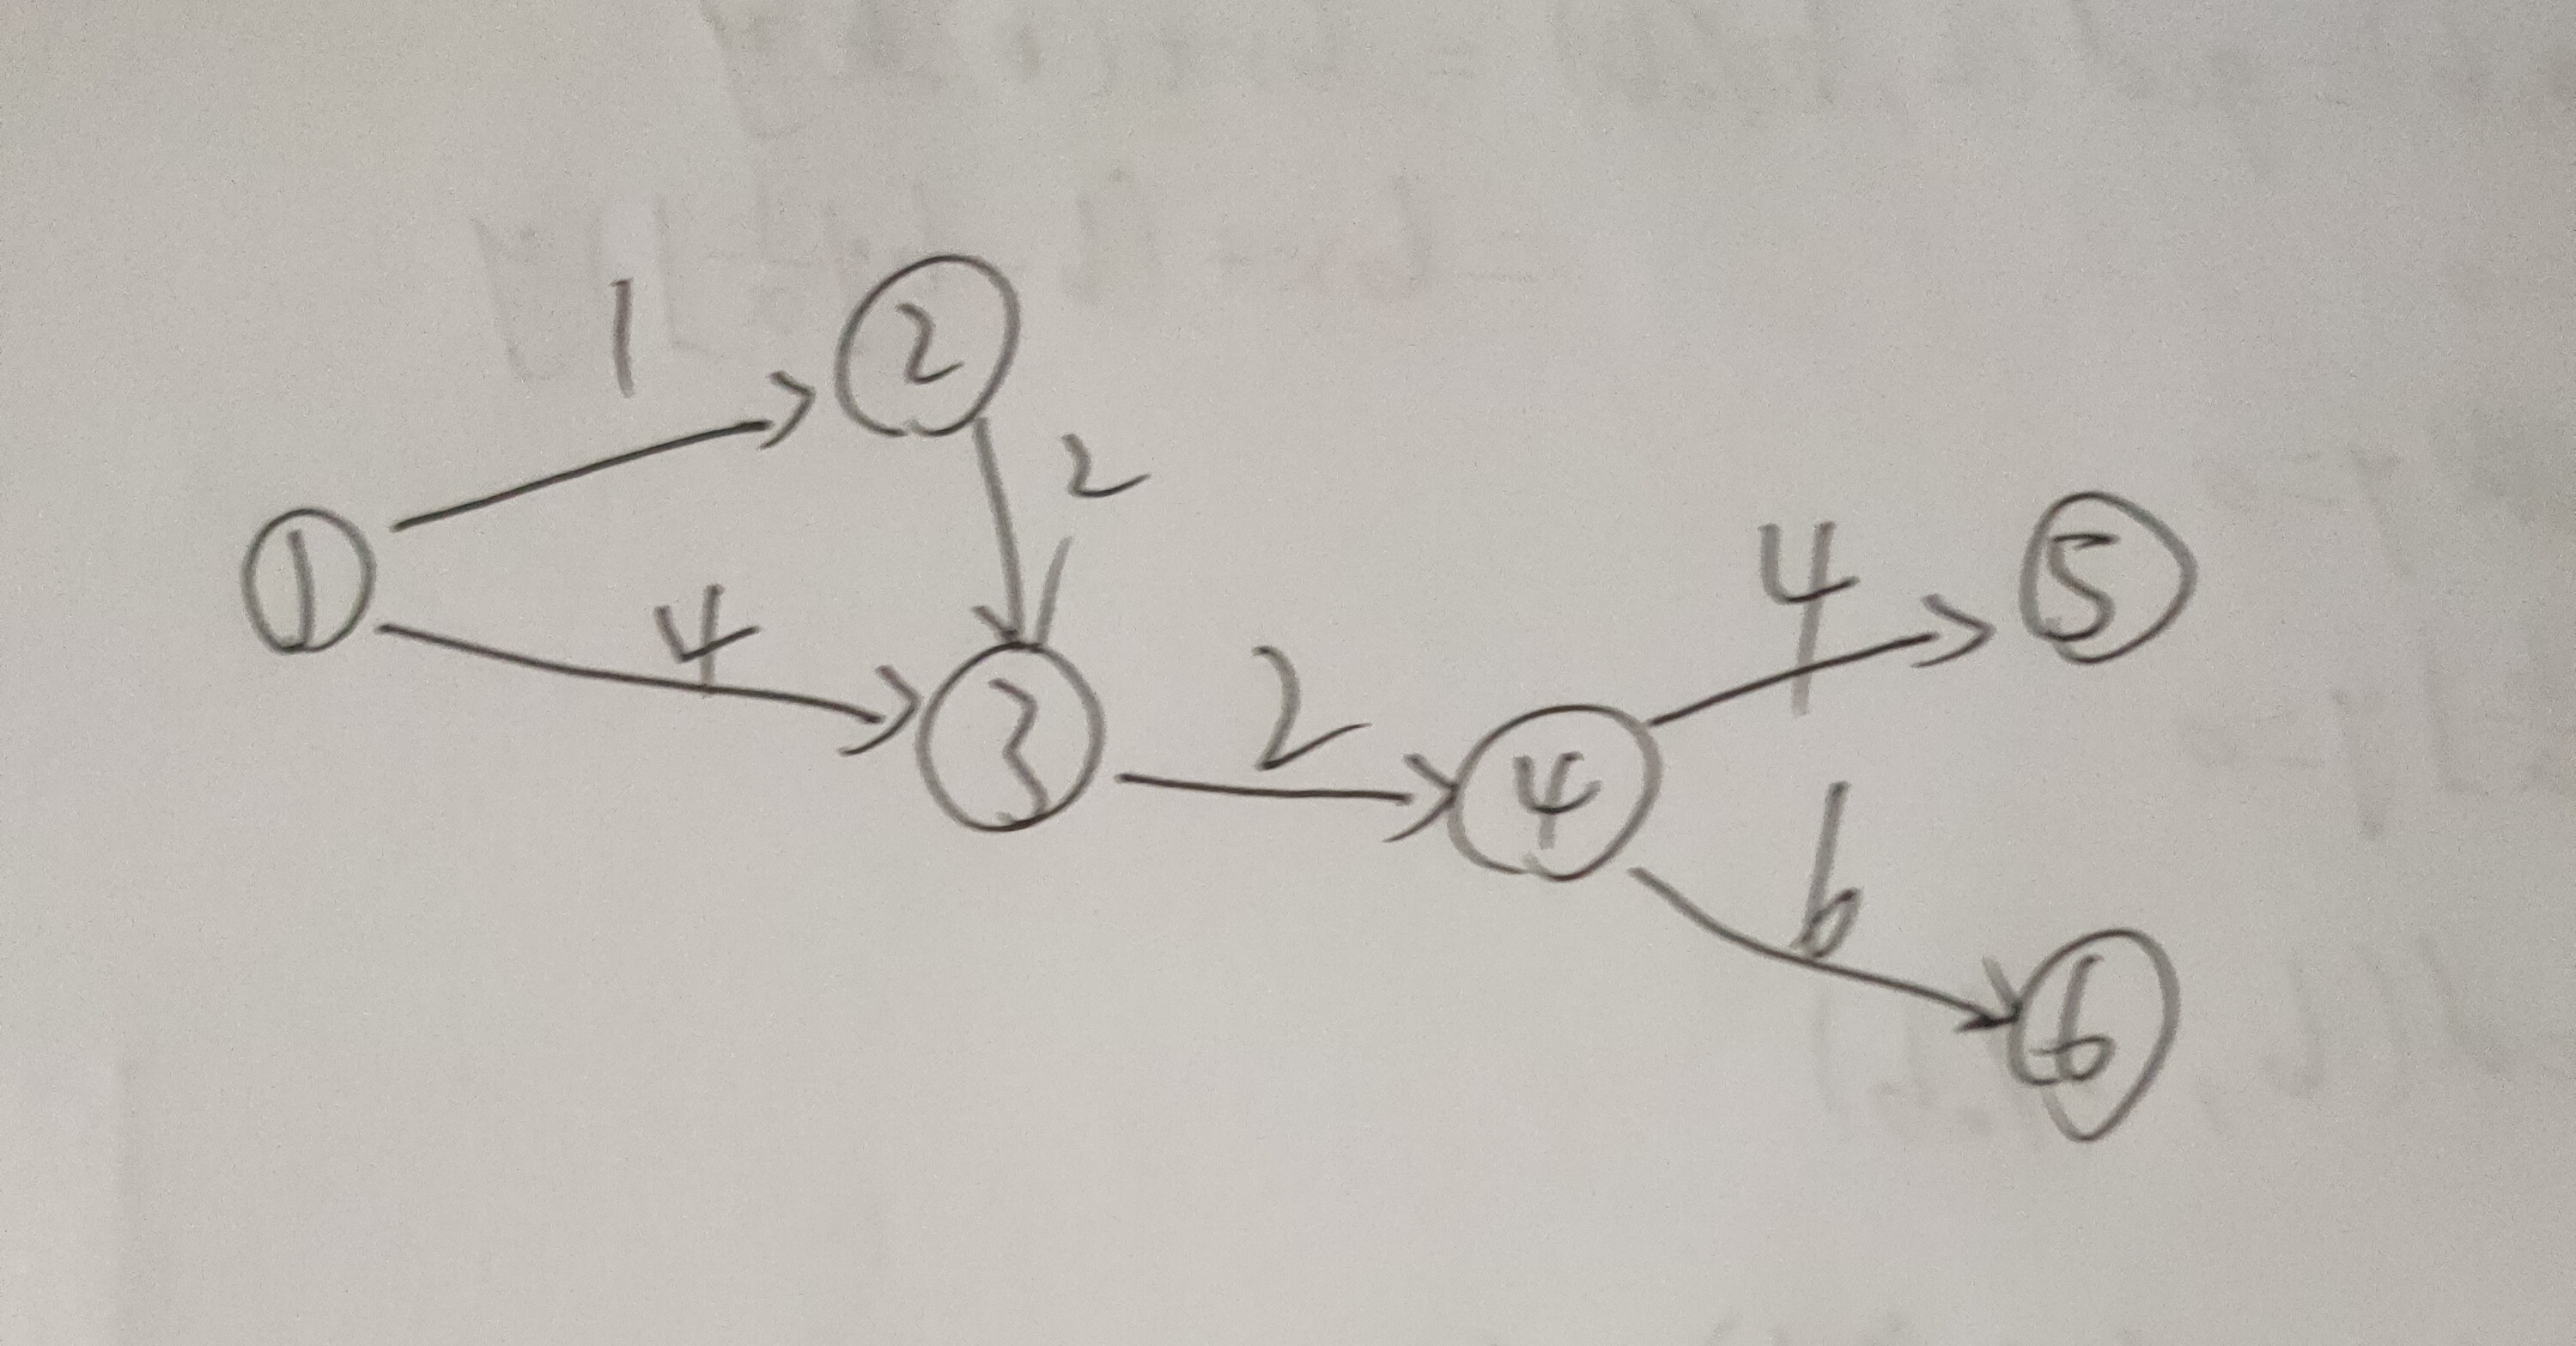 1
②
2
①
4
③
2
④
4
⑤
6
⑥